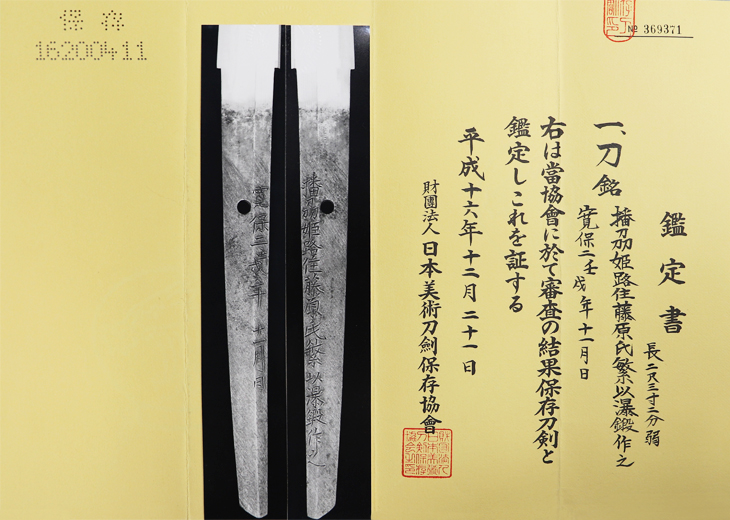 保存
16200411
№ 369371
鑑定書
一、刀 銘 播刕姫路住藤原氏繁以瀑鍛作之
寛保二壬戌年十一月日
長二尺三寸二分弱
右は當協會に於て審査の結果保存刀剣と
鑑定しこれを証する
平成十六年十二月二十一日
財團法人日本美術刀劍保存協會
播刕姫路住藤原氏繁以瀑鍛作之